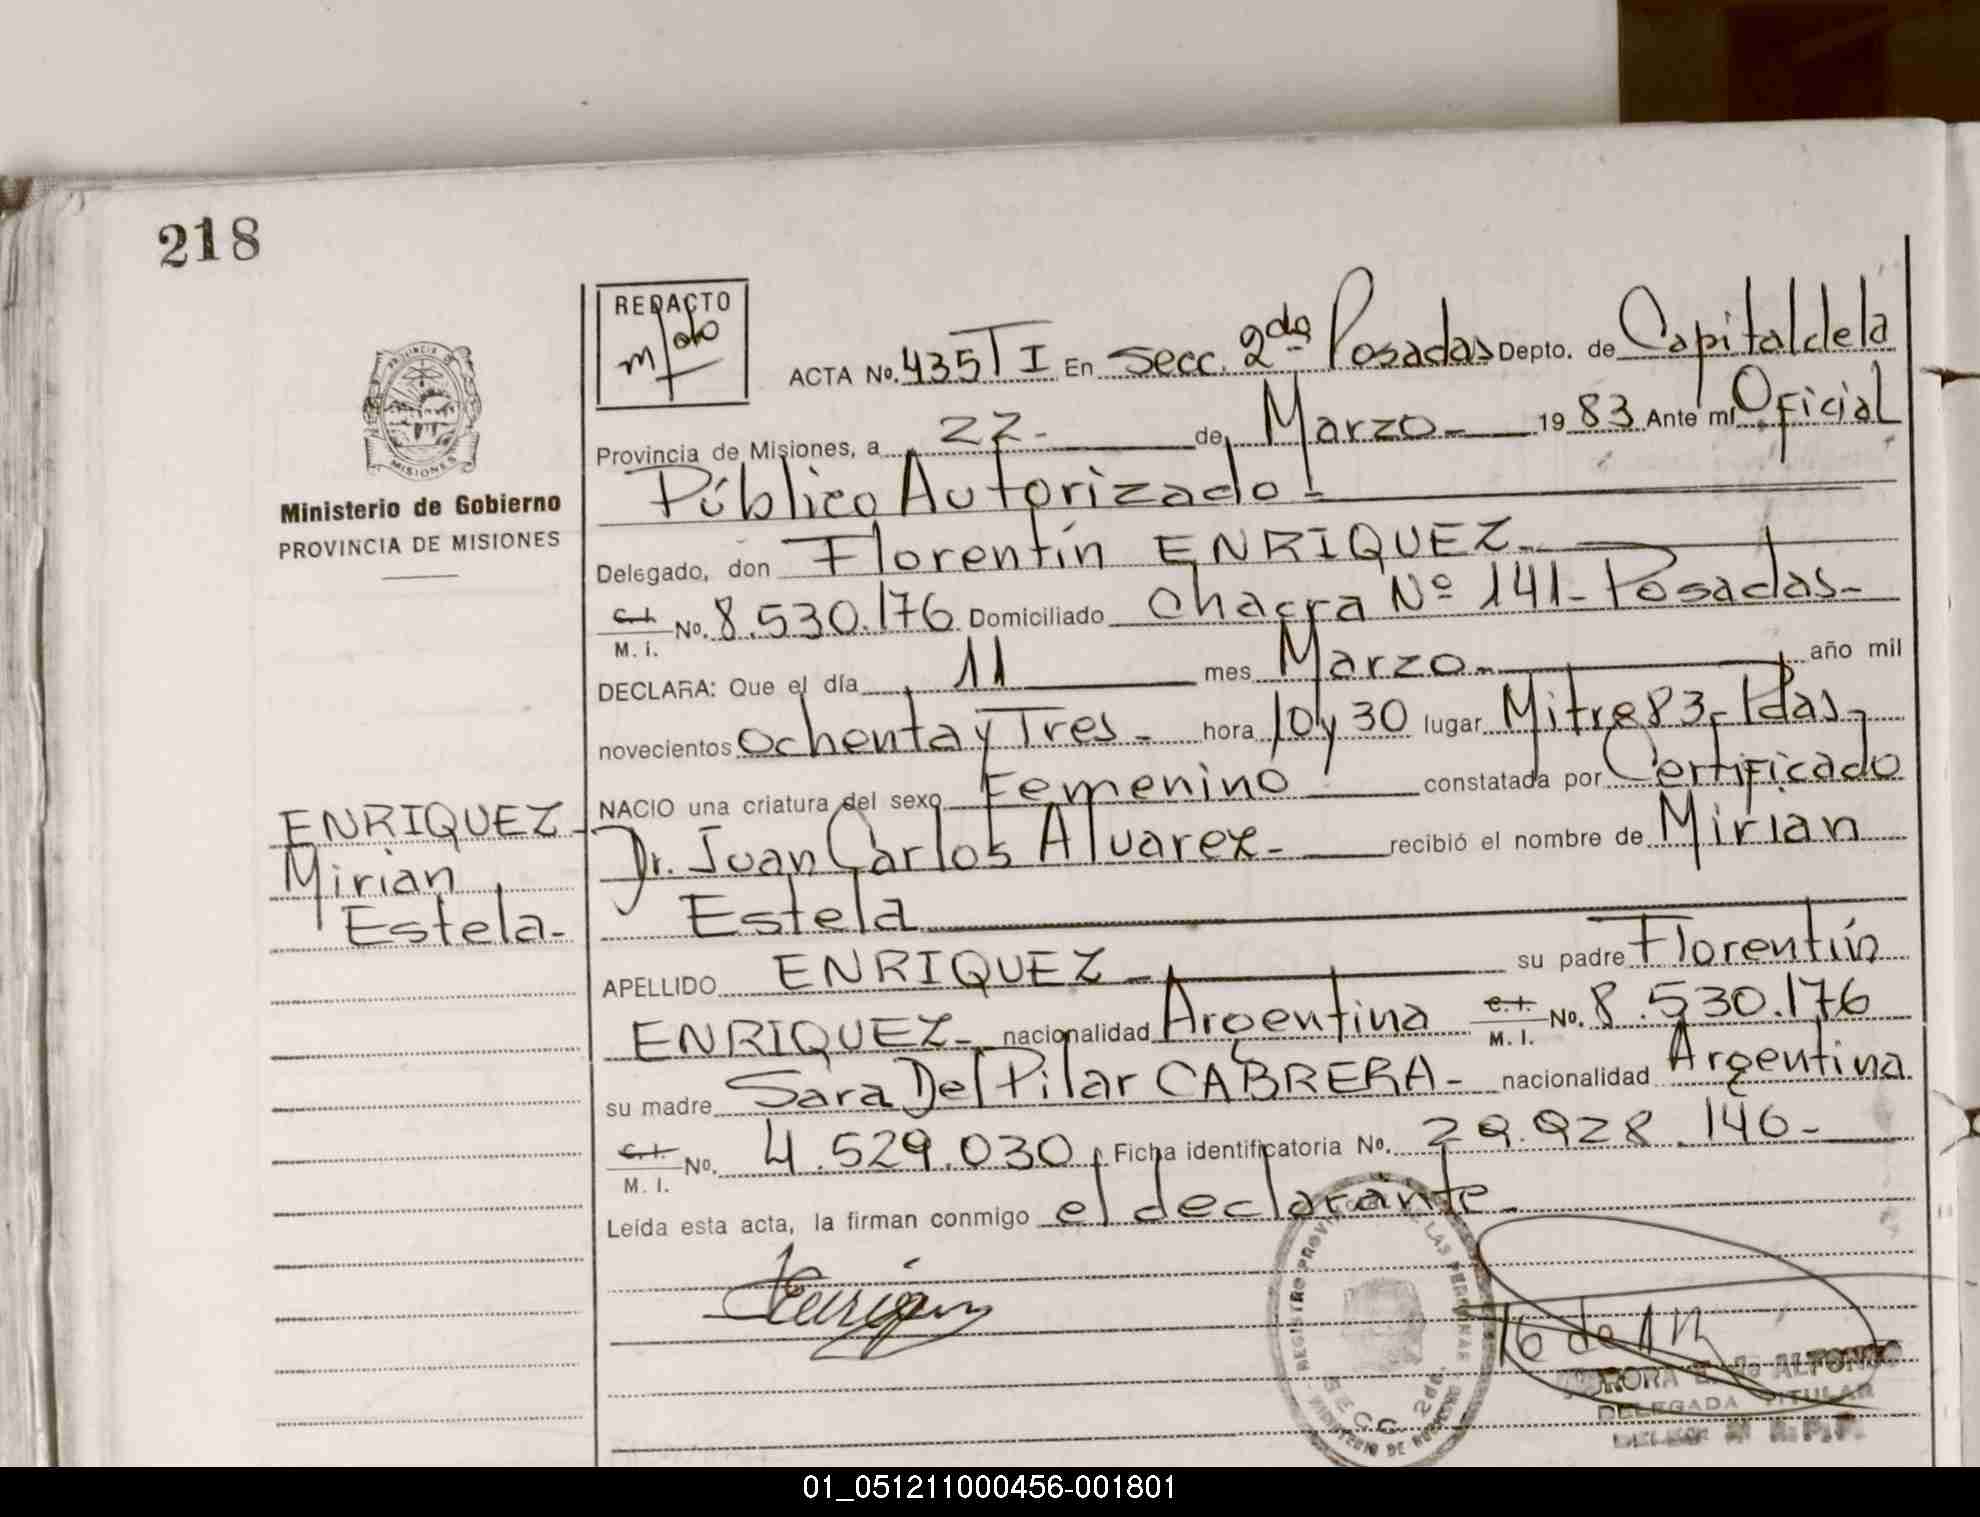 218
REDACTO
PROVINCIA DE
MISIONES
Ministerio de Gobierno
PROVINCIA DE MISIONES
ENRIQUEZ-
Mirian
Estela-
ACTA No. 435 T I En Secc. 2da Posadas Depto. de Capital de la
Provincia de Misiones, a 22- de Marzo- 19 83 Ante mí Oficial
Público Autorizado-
Delegado, don Florentín ENRIQUEZ-
C.I. M. I. No. 8.530.176 Domiciliado Chacra Nº 141- Posadas-
DECLARA: Que el día 11 mes Marzo- año mil
novecientos ochenta y Tres- hora 10 y 30 lugar Mitre 83- Pdas-
NACIO una criatura del sexo Femenino constatada por Certificado
Dr. Juan Carlos Alvarez- recibió el nombre de Mirian
Estela
APELLIDO ENRIQUEZ- su padre Florentín
ENRIQUEZ- nacionalidad Argentina C.I. M. I. No. 8.530.176
su madre Sara Del Pilar CABRERA- nacionalidad Argentina
C.I. M. I. No. 4.529.030 Ficha identificatoria No. 29.928.146-
Leída esta acta, la firman conmigo el declarante-
REGISTRO PROV DE LAS PERSONAS
SECC. 2da.
MINISTERIO DE GOBIERNO
ALFONSO
DELEGADA TITULAR
01_051211000456-001801